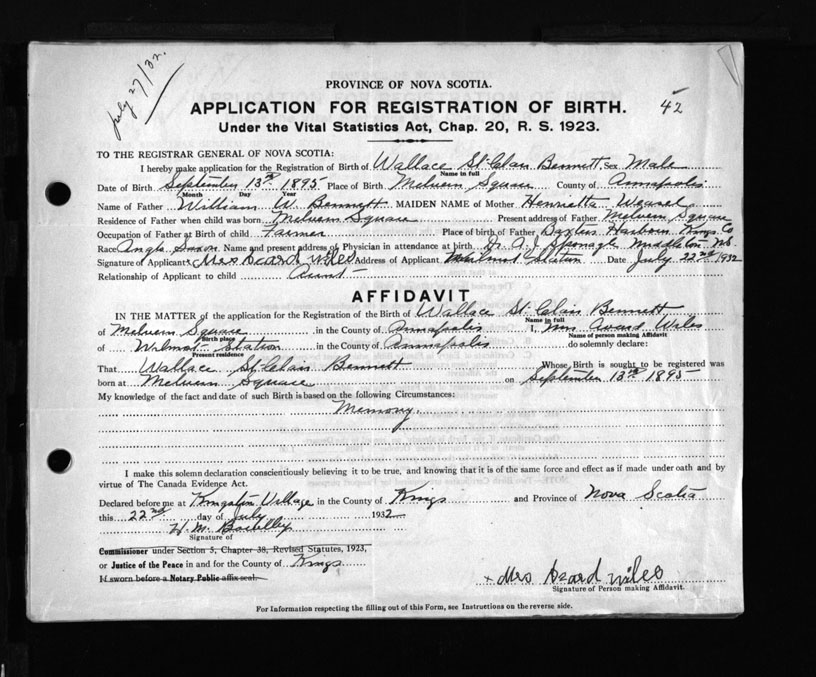 July 27/32.
PROVINCE OF NOVA SCOTIA.
APPLICATION FOR REGISTRATION OF BIRTH. 42
Under the Vital Statistics Act, Chap. 20, R. S. 1923.
TO THE REGISTRAR GENERAL OF NOVA SCOTIA:
I hereby make application for the Registration of Birth of Wallace St. Clair Bennett Sex Male
Name in full
Date of Birth September 13th 1895 Place of Birth Melvern Square County of Annapolis
Month Day Year
Name of Father William W. Bennett MAIDEN NAME of Mother Henrietta
Residence of Father when child was born Melvern Square Present address of Father Melvern Square
Occupation of Father at Birth of child Farmer Place of birth of Father Baxters Harbour Kings Co
Race Anglo Saxon Name and present address of Physician in attendance at birth Dr. A. J. Sponagle Middleton N.S.
Signature of Applicant Mrs Avard Wiles Address of Applicant Wilmot Station Date July 22nd 1932
Relationship of Applicant to child Aunt
AFFIDAVIT
IN THE MATTER of the application for the Registration of the Birth of Wallace St. Clair Bennett
Name in full
of Melvern Square in the County of Annapolis I, Mrs Avard Wiles
Birth place Name of person making Affidavit
of Wilmot Station in the County of Annapolis do solemnly declare:
Present residence
That Wallace St Clair Bennett Whose Birth is sought to be registered was
born at Melvern Square on September 13th 1895
My knowledge of the fact and date of such Birth is based on the following Circumstances:
Memory
I make this solemn declaration conscientiously believing it to be true, and knowing that it is of the same force and effect as if made under oath and by
virtue of The Canada Evidence Act.
Declared before me at Kingston Village in the County of Kings and Province of Nova Scotia
this 22nd day of July 1932
H. M.
Signature of
Commissioner under Section 5, Chapter 38, Revised Statutes, 1923,
or Justice of the Peace in and for the County of Kings
If sworn before a Notary Public affix seal.
x Mrs Avard Wiles
Signature of Person making Affidavit.
For Information respecting the filling out of this Form, see Instructions on the reverse side.